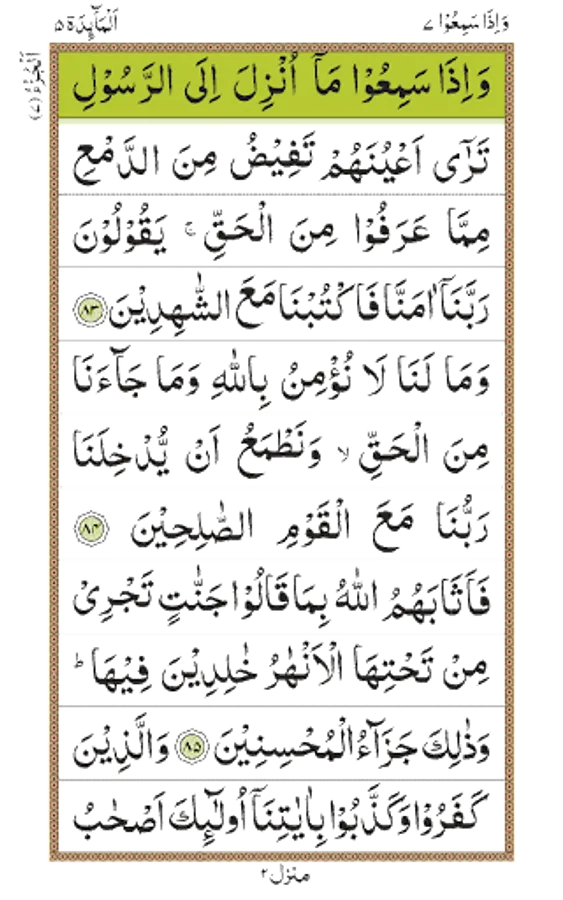 وَاِذَا سَمِعُوْا ۷
اَلْمَآىِٕدَة ۵
اَلْجُزْءُ (۷)
وَاِذَا سَمِعُوْا مَاۤ اُنْزِلَ اِلَى الرَّسُوْلِ
تَرٰۤى اَعْيُنَهُمْ تَفِيْضُ مِنَ الدَّمْعِ
مِمَّا عَرَفُوْا مِنَ الْحَقِّ ۚ يَقُوْلُوْنَ
رَبَّنَاۤ اٰمَنَّا فَاكْتُبْنَا مَعَ الشّٰهِدِيْنَ ۸۳
وَمَا لَنَا لَا نُؤْمِنُ بِاللّٰهِ وَمَا جَآءَنَا
مِنَ الْحَقِّ ۙ وَنَطْمَعُ اَنْ يُّدْخِلَنَا
رَبُّنَا مَعَ الْقَوْمِ الصّٰلِحِيْنَ ۸۴
فَاَثَابَهُمُ اللّٰهُ بِمَا قَالُوْا جَنّٰتٍ تَجْرِىْ
مِنْ تَحْتِهَا الْاَنْهٰرُ خٰلِدِيْنَ فِيْهَا ؕ
وَذٰلِكَ جَزَآءُ الْمُحْسِنِيْنَ ۸۵ وَالَّذِيْنَ
كَفَرُوْا وَكَذَّبُوْا بِاٰيٰتِنَاۤ اُولٰٓىِٕكَ اَصْحٰبُ
منزل ۲